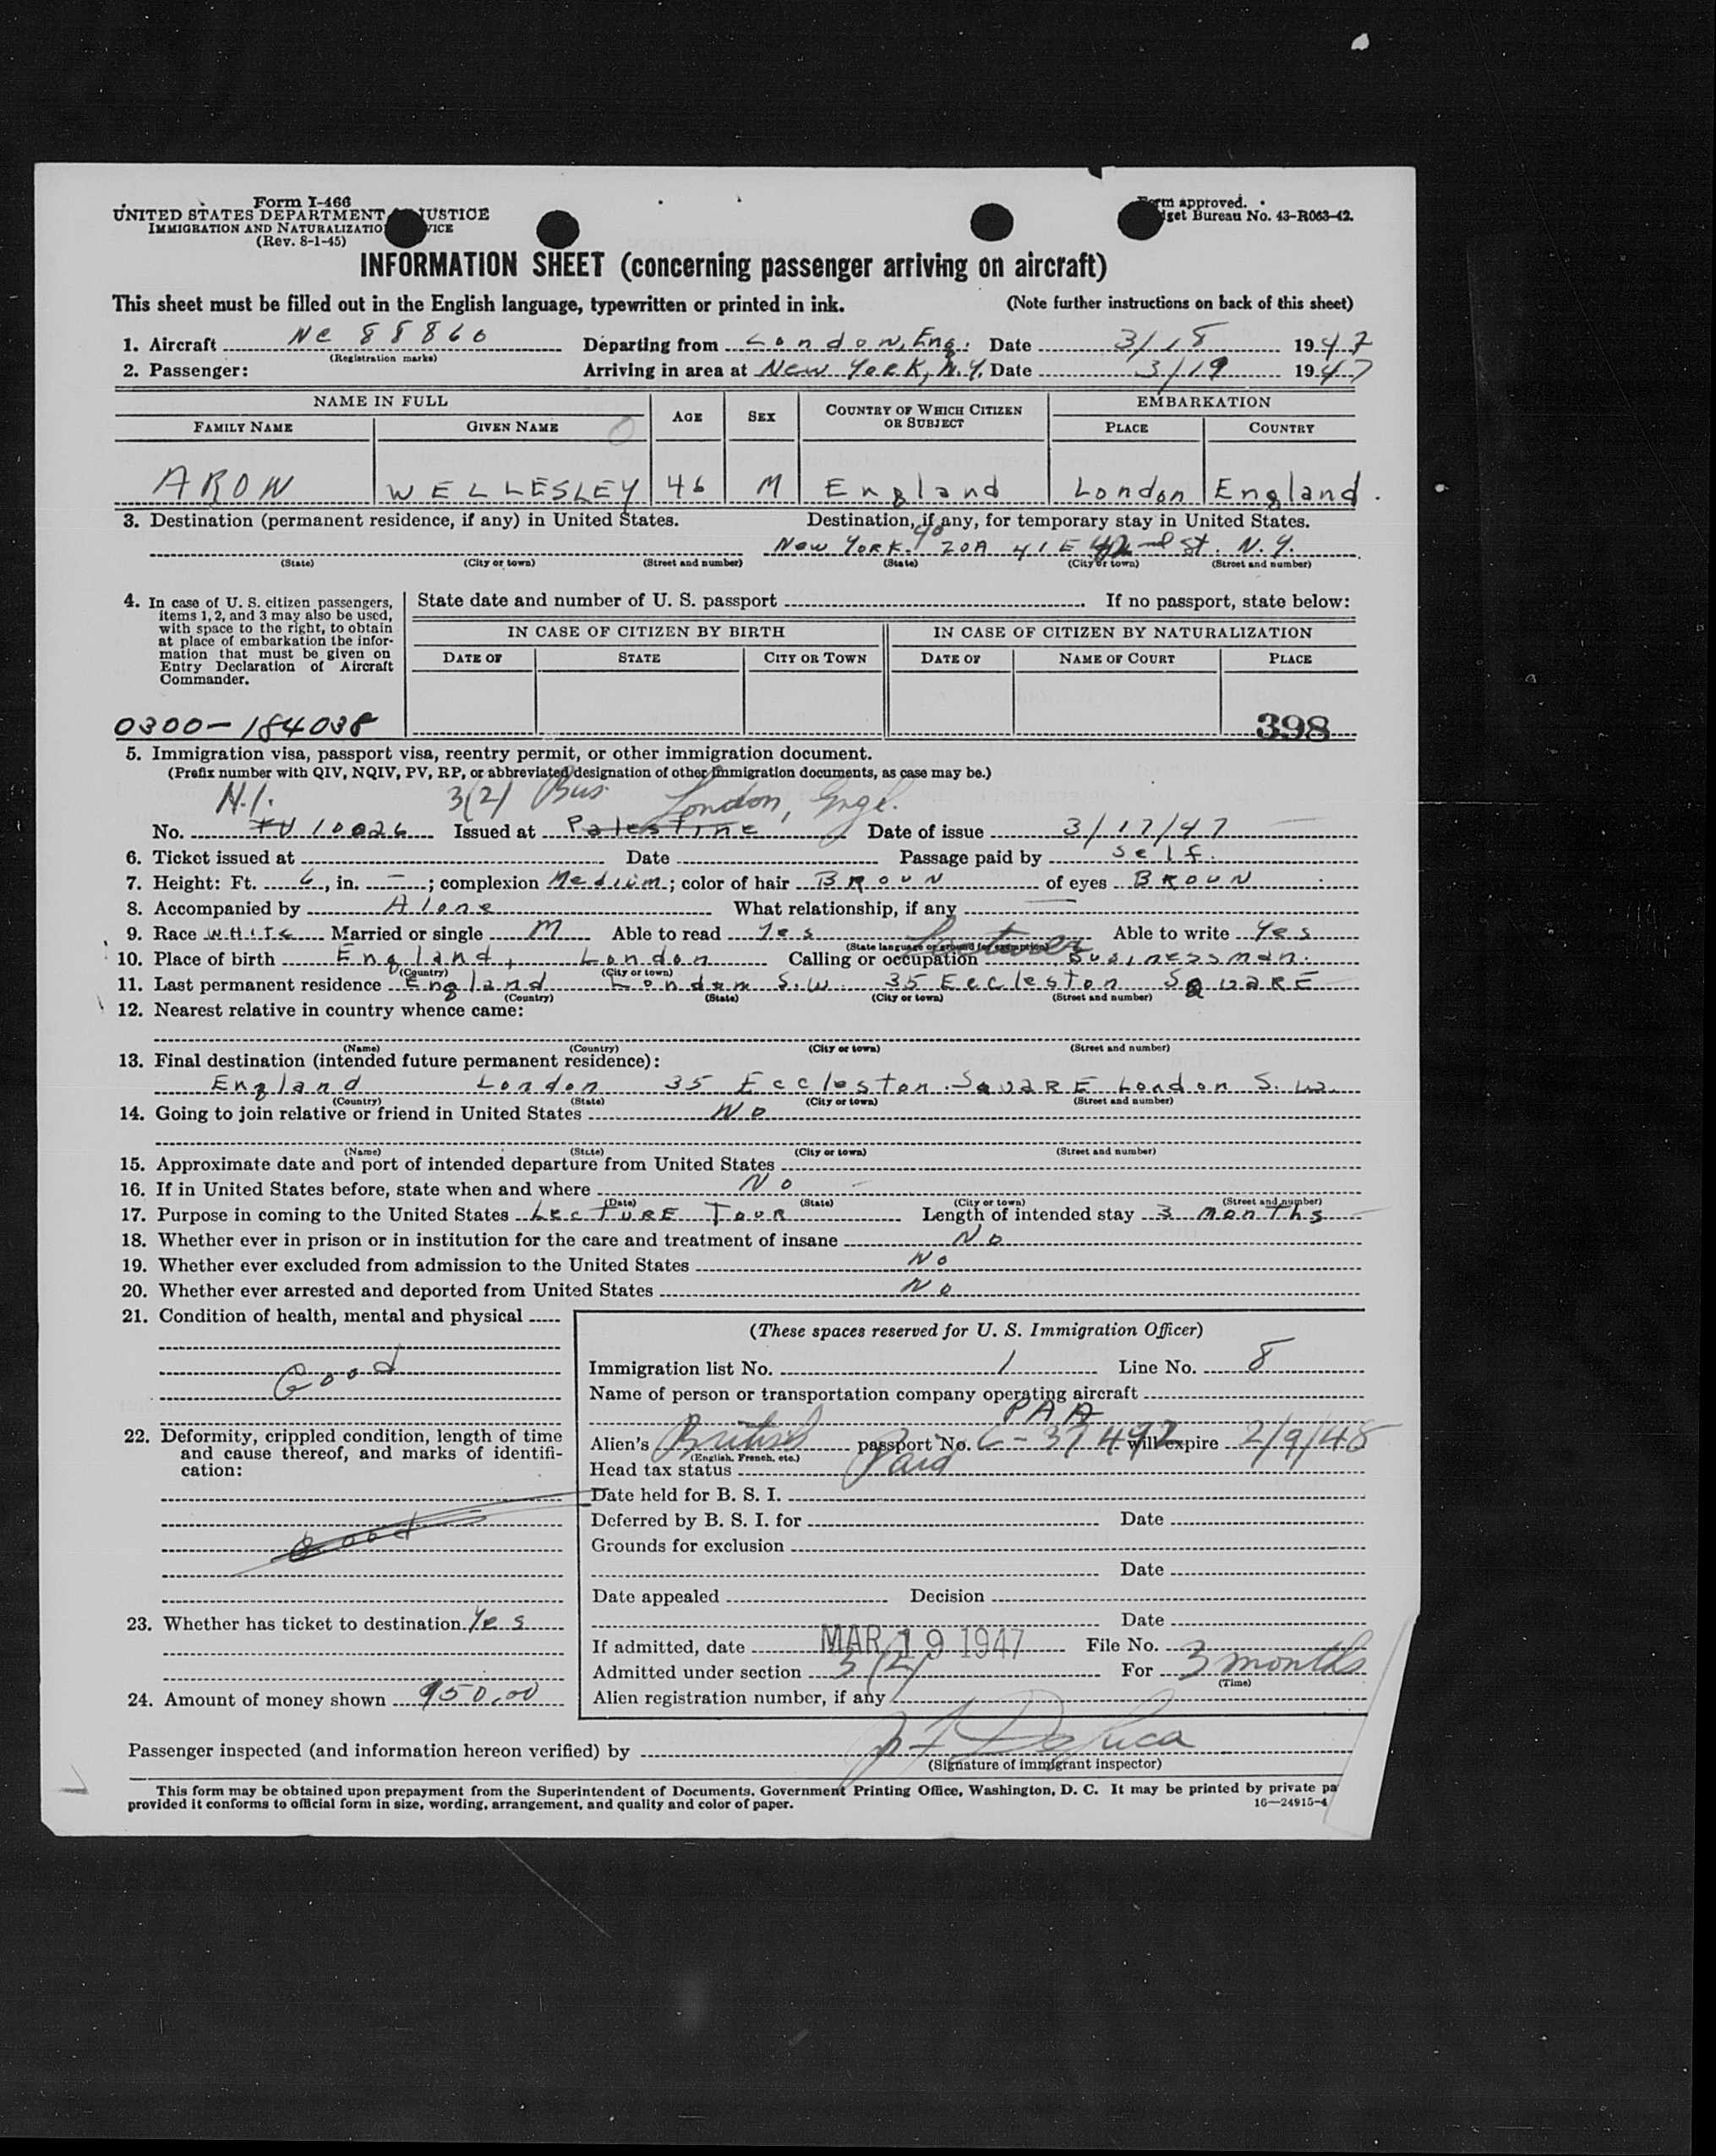 Form I-466
UNITED STATES DEPARTMENT JUSTICE
IMMIGRATION AND NATURALIZATIO VICE
(Rev. 8-1-45)
rm approved.
get Bureau No. 43-R063-42.
INFORMATION SHEET (concerning passenger arriving on aircraft)
This sheet must be filled out in the English language, typewritten or printed in ink. (Note further instructions on back of this sheet)
1. Aircraft NC 88860 Departing from London, Eng. Date 3/18 1947
(Registration marks)
2. Passenger: Arriving in area at New York, N.Y. Date 3/19 1947
NAME IN FULL AGE SEX COUNTRY OF WHICH CITIZEN OR SUBJECT EMBARKATION
FAMILY NAME GIVEN NAME PLACE COUNTRY
ARON WELLESLEY 46 M England London England.
3. Destination (permanent residence, if any) in United States. Destination, if any, for temporary stay in United States.
New York. % ZOA 41 E 42nd St. N.Y.
(State) (City or town) (Street and number) (State) (City or town) (Street and number)
4. In case of U. S. citizen passengers, items 1, 2, and 3 may also be used, with space to the right, to obtain at place of embarkation the information that must be given on Entry Declaration of Aircraft Commander.
State date and number of U. S. passport If no passport, state below:
IN CASE OF CITIZEN BY BIRTH IN CASE OF CITIZEN BY NATURALIZATION
DATE OF STATE CITY OR TOWN DATE OF NAME OF COURT PLACE
0300-184038 398
5. Immigration visa, passport visa, reentry permit, or other immigration document.
(Prefix number with QIV, NQIV, PV, RP, or abbreviated designation of other immigration documents, as case may be.)
N.I. 3(2) Bus London, Engl.
No. 10026 Issued at Palestine Date of issue 3/17/47
6. Ticket issued at Date Passage paid by Self.
7. Height: Ft. 6, in. –; complexion Medium; color of hair BROUN of eyes BROUN
8. Accompanied by Alone What relationship, if any
9. Race WHITE Married or single M Able to read Yes Able to write Yes
(State language or ground for exemption)
10. Place of birth England, London Calling or occupation Lecturer Businessman.
(Country) (City or town)
11. Last permanent residence England London S.W. 35 Eccleston SQUARE
(Country) (State) (City or town) (Street and number)
12. Nearest relative in country whence came:
(Name) (Country) (City or town) (Street and number)
13. Final destination (intended future permanent residence):
England London 35 Eccleston SQUARE London S.W.
(Country) (State) (City or town) (Street and number)
14. Going to join relative or friend in United States No
(Name) (State) (City or town) (Street and number)
15. Approximate date and port of intended departure from United States
16. If in United States before, state when and where No
(Date) (State) (City or town) (Street and number)
17. Purpose in coming to the United States LECTURE TOUR Length of intended stay 3 months
18. Whether ever in prison or in institution for the care and treatment of insane No
19. Whether ever excluded from admission to the United States No
20. Whether ever arrested and deported from United States No
21. Condition of health, mental and physical
Good
22. Deformity, crippled condition, length of time and cause thereof, and marks of identification:
Good
23. Whether has ticket to destination Yes
24. Amount of money shown 950.00
(These spaces reserved for U. S. Immigration Officer)
Immigration list No. 1 Line No. 8
Name of person or transportation company operating aircraft
PAA
Alien's British passport No. C-37492 will expire 2/9/48
(English, French, etc.)
Head tax status Paid
Date held for B. S. I.
Deferred by B. S. I. for Date
Grounds for exclusion
Date
Date appealed Decision
Date
If admitted, date MAR 19 1947 File No.
Admitted under section 3(2) For 3 months
(Time)
Alien registration number, if any
Passenger inspected (and information hereon verified) by
(Signature of immigrant inspector)
This form may be obtained upon prepayment from the Superintendent of Documents, Government Printing Office, Washington, D. C. It may be printed by private pa
provided it conforms to official form in size, wording, arrangement, and quality and color of paper. 16—24915-4